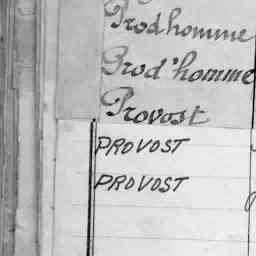 Prodhomme
Prod'homme
Provost
PROVOST
PROVOST